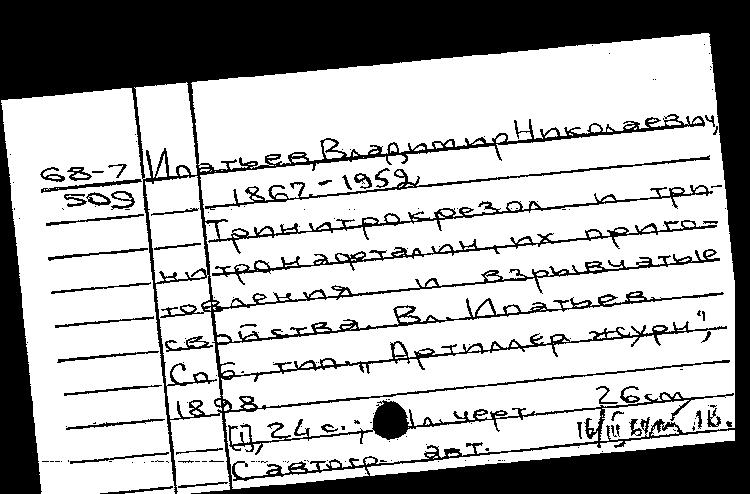 68-7 Ипатьев, Владимир Николаевич,
509 1867.-1952
Тринитрокрезол и три-
нитронафталин, их приго=
товления и взрывчатые
свойства. Вл. Ипатьев.
Спб., тип. „Артиллер журн",
1898.
[1], 24 с.; 1 л. черт. 26 см
С автогр. авт. 16/III